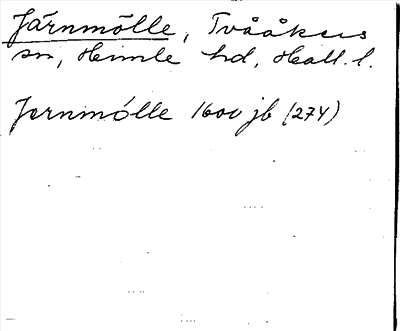 Järnmölle, Tvååkers
sn, Himle hd, Hall. l.
Jernmölle 1600 jb (274)